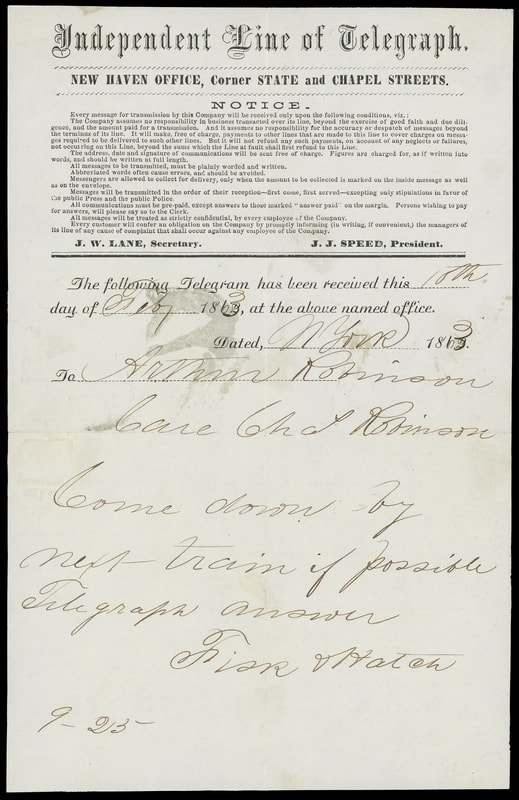 Independent Line of Telegraph.
NEW HAVEN OFFICE, Corner STATE and CHAPEL STREETS.
NOTICE.
Every message for transmission by this Company will be received only upon the following conditions, viz.:
The Company assumes no responsibility in business transacted over its line, beyond the exercise of good faith and due dili-
gence, and the amount paid for a transmission. And it assumes no responsibility for the accuracy or despatch of messages beyond
the terminus of its line. It will make, free of charge, payments to other lines that are made to this line to cover charges on messa-
ges required to be delivered to such other lines. But it will not refund any such payments, on account of any neglects or failures,
not occurring on this Line, beyond the sums which the Line at fault shall first refund to this Line.
The address, date and signature of communications will be sent free of charge. Figures are charged for, as if written into
words, and should be written at full length.
All messages to be transmitted, must be plainly worded and written.
Abbreviated words often cause errors, and should be avoided.
Messengers are allowed to collect for delivery, only when the amount to be collected is marked on the inside message as well
as on the envelope.
Messages will be transmitted in the order of their reception—first come, first served—excepting only stipulations in favor of
the public Press and the public Police.
All communications must be pre-paid, except answers to those marked "answer paid" on the margin. Persons wishing to pay
for answers, will please say so to the Clerk.
All messages will be treated as strictly confidential, by every employee of the Company.
Every customer will confer an obligation on the Company by promptly informing (in writing, if convenient,) the managers of
its line of any cause of complaint that shall occur against any employee of the Company.
J. W. LANE, Secretary. J. J. SPEED, President.
The following Telegram has been received this 10th
day of Feby 1863, at the above named office.
Dated, N York 1863.
To Arthur Robinson
Care Ch S Robinson
Come down by
next train if possible
Telegraph answer
Fisk & Hatch
9-25-